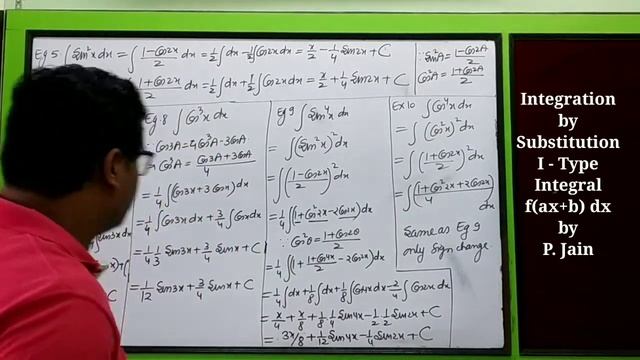 Eg 5 ∫ Sin²x dx = ∫ (1-Cos2x)/2 dx = 1/2 ∫ dx - 1/2 ∫ Cos2x dx = x/2 - 1/4 Sin2x + C
1+Cos2x/2 dx = 1/2 ∫ dx + 1/2 ∫ Cos2x dx = x/2 + 1/4 Sin2x + C
∵ Sin²A = (1-Cos2A)/2
Cos²A = (1+Cos2A)/2
Eg 8 ∫ Cos³x dx
∵ Cos3A = 4Cos³A - 3CosA
∵ Cos³A = (Cos3A + 3CosA)/4
= 1/4 ∫ (Cos3x + 3Cosx) dx
= 1/4 ∫ Cos3x dx + 3/4 ∫ Cosx dx
= 1/4 1/3 Sin3x + 3/4 Sinx + C
= 1/12 Sin3x + 3/4 Sinx + C
Eg 9 ∫ Sin⁴x dx
= ∫ (Sin²x)² dx
= ∫ ((1-Cos2x)/2)² dx
= 1/4 ∫ (1+Cos²2x-2Cos2x) dx
∵ Cos²θ = (1+Cos2θ)/2
= 1/4 ∫ (1 + (1+Cos4x)/2 - 2Cos2x) dx
= 1/4 ∫ dx + 1/8 ∫ dx + 1/8 ∫ Cos4x dx - 2/4 ∫ Cos2x dx
= x/4 + x/8 + 1/8 · 1/4 Sin4x - 1/2 · 1/2 Sin2x + C
= 3x/8 + 1/12 Sin4x - 1/4 Sin2x + C
Ex 10 ∫ Cos⁴x dx
= ∫ (Cos²x)² dx
= ∫ ((1+Cos2x)/2)² dx
= ∫ (1+Cos²2x+2Cos2x)/4 dx
Same as Eg 9
only sign change.
Integration
by
Substitution
I - Type
Integral
f(ax+b) dx
by
P. Jain